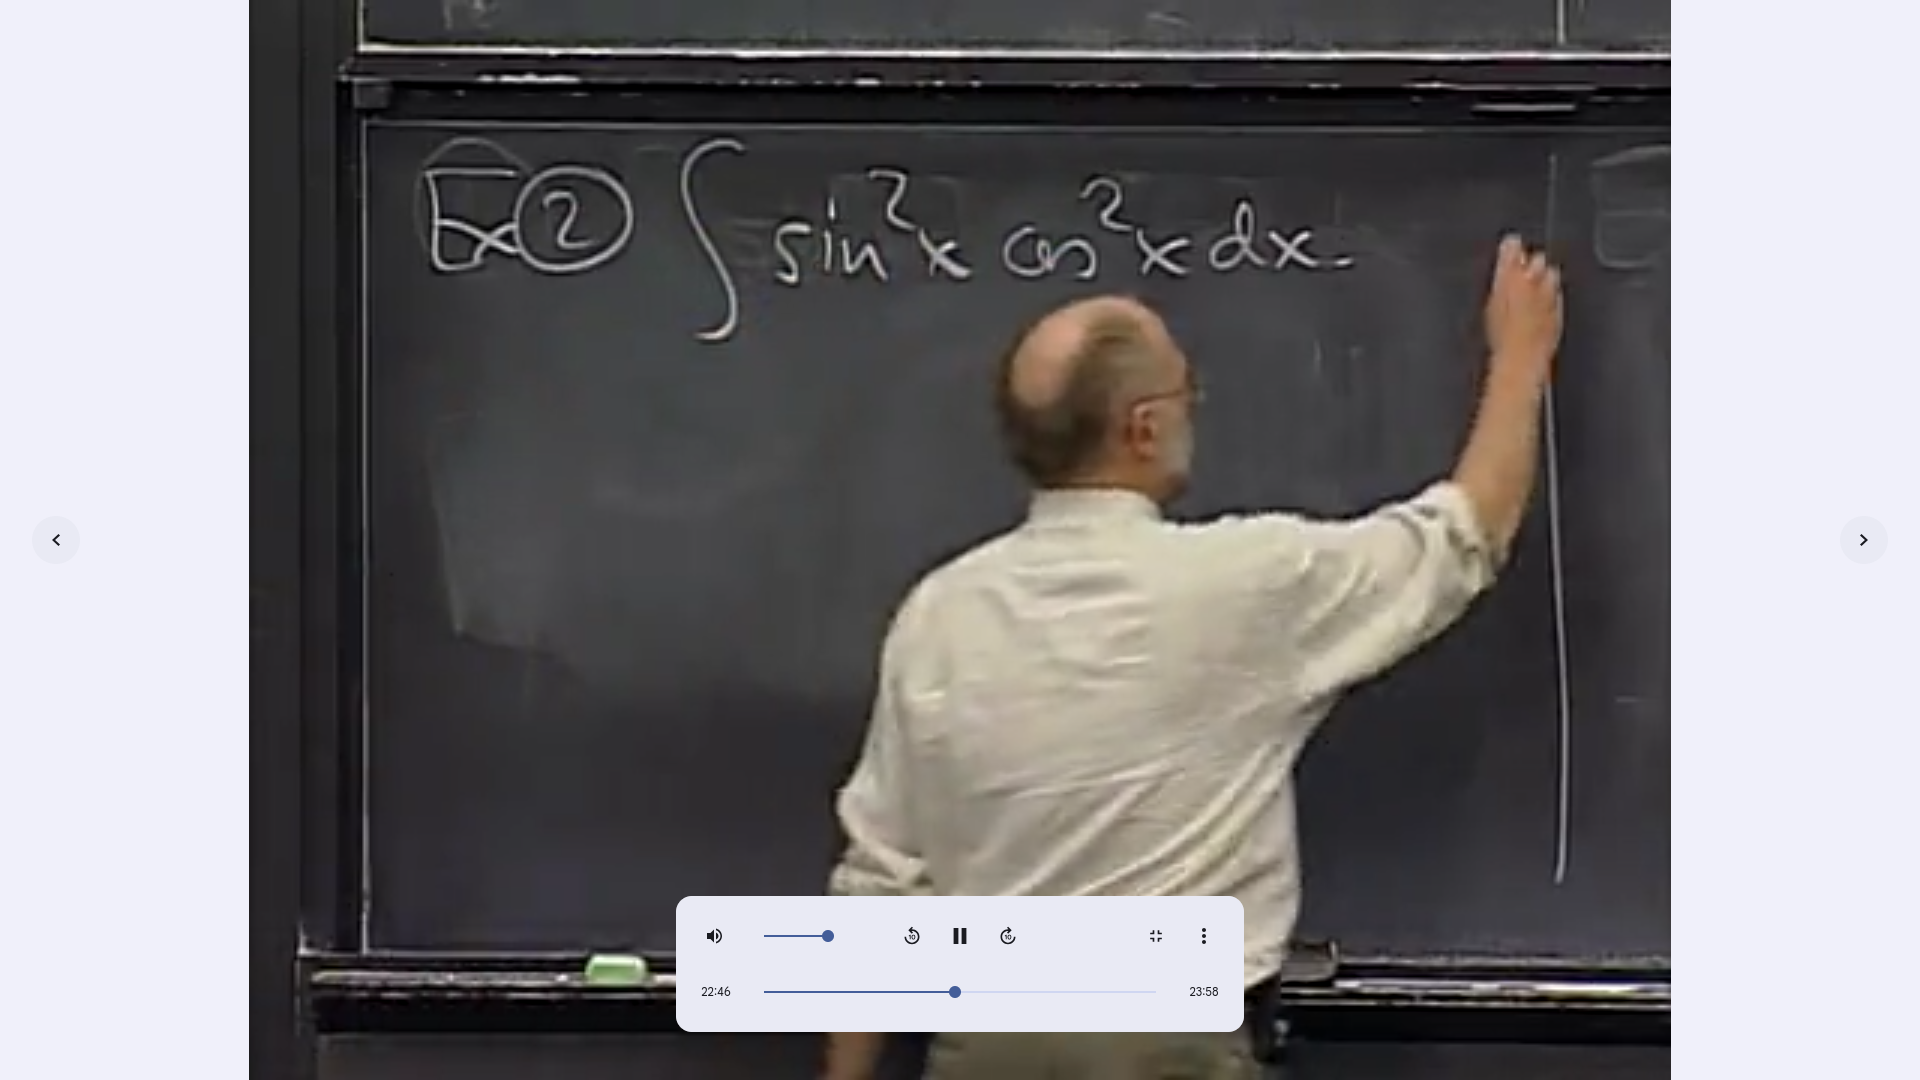 Ex ② ∫ sin²x cos²x dx.
22:46 23:58